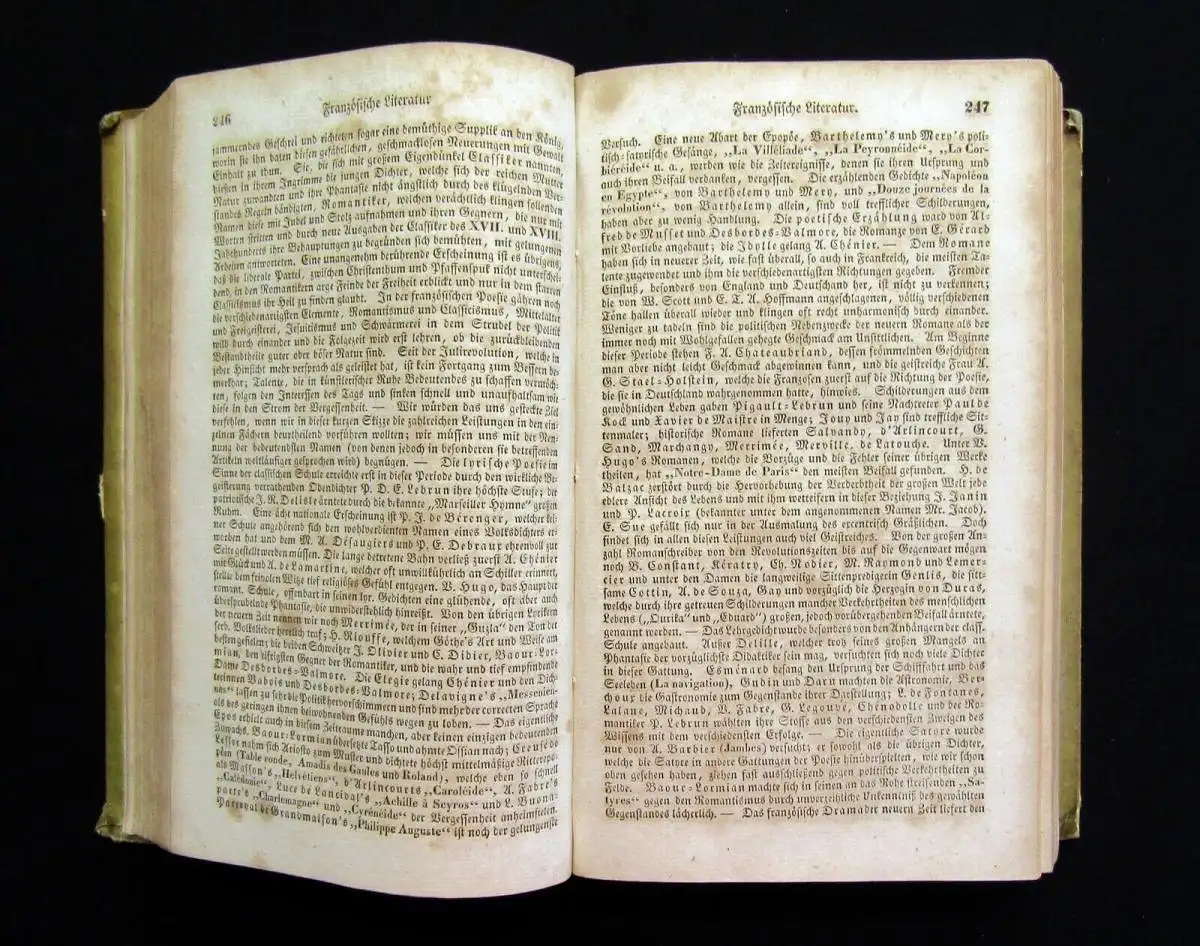 246
Französische Literatur
jammerndes Geschrei und richteten sogar eine demüthige Supplik an den König,
worin sie ihn baten diesen gefährlichen, geschmacklosen Neuerungen mit Gewalt
Einhalt zu thun. Sie, die sich mit großem Eigendünkel Classiker nannten,
hießen in ihrem Ingrimme die jungen Dichter, welche sich der reichen Mutter
Natur zuwandten und ihre Phantasie nicht ängstlich durch des klügelnden Ver-
standes Regeln bändigten, Romantiker, welchen verächtlich klingen sollenden
Namen diese mit Jubel und Stolz aufnahmen und ihren Gegnern, die nur mit
Worten stritten und durch neue Ausgaben der Classiker des XVII. und XVIII.
Jahrhunderts ihre Behauptungen zu begründen sich bemühten, mit gelungenen
Arbeiten antworteten. Eine unangenehm berührende Erscheinung ist es übrigens,
daß die liberale Partei, zwischen Christenthum und Pfaffenspuk nicht unterschei-
dend, in den Romantikern arge Feinde der Freiheit erblickt und nur in dem starren
Classicismus ihr Heil zu finden glaubt. In der französischen Poesie gähren noch
die verschiedenartigsten Elemente, Romantismus und Classicismus, Mittelalter
und Freigeisterei, Jesuitismus und Schwärmerei in dem Strudel der Politik
wild durch einander und die Folgezeit wird erst lehren, ob die zurückbleibenden
Bestandtheile guter oder böser Natur sind. Seit der Julirevolution, welche in
jeder Hinsicht mehr versprach als geleistet hat, ist kein Fortgang zum Bessern be-
merkbar; Talente, die in künstlerischer Ruhe Bedeutendes zu schaffen vermöch-
ten, folgen den Interessen des Tags und sinken schnell und unaufhaltsam wie
diese in den Strom der Vergessenheit. — Wir würden das uns gesteckte Ziel
verfehlen, wenn wir in dieser kurzen Skizze die zahlreichen Leistungen in den ein-
zelnen Fächern beurtheilend vorführen wollten; wir müssen uns mit der Nen-
nung der bedeutendsten Namen (von denen jedoch in besonderen sie betreffenden
Artikeln weitläufiger gesprochen wird) begnügen. — Die lyrische Poesie im
Sinne der classischen Schule erreichte erst in dieser Periode durch den wirkliche Be-
geisterung verrathenden Odendichter P. D. E. Lebrun ihre höchste Stufe; der
patriotische J. R. Delisle ärntete durch die bekannte „Marseiller Hymne“ großen
Ruhm. Eine ächt nationale Erscheinung ist P. J. de Bérenger, welcher kei-
ner Schule angehörend sich den wohlverdienten Namen eines Volksdichters er-
worben hat und dem M. A. Désaugiers und P. E. Debraux ehrenvoll zur
Seite gestellt werden müssen. Die lange betretene Bahn verließ zuerst A. Chénier
mit Glück und A. de Lamartine, welcher oft unwillkührlich an Schiller erinnert,
stellte dem frivolen Witze tief religiöses Gefühl entgegen. V. Hugo, das Haupt der
romant. Schule, offenbart in seinen lyr. Gedichten eine glühende, oft aber auch
übersprudelnde Phantasie, die unwiderstehlich hinreißt. Von den übrigen Lyrikern
der neuen Zeit nennen wir noch Merrimée, der in seiner „Guzla“ den Ton der
serb. Volkslieder herrlich traf; H. Riouffe, welchem Göthe's Art und Weise am
besten gefielen; die beiden Schweizer J. Olivier und C. Didier, Baour-Lor-
mian, den eifrigsten Gegner der Romantiker, und die wahr und tief empfindende
Dame Desbordes-Valmore. Die Elegie gelang Chénier und den Dich-
terinnen Babois und Desbordes-Valmore; Delavigne's „Messenien-
nas“ lassen zu sehr die Politik hervorschimmern und sind mehr der correcten Sprache
als des geringen ihnen beiwohnenden Gefühls wegen zu loben. — Das eigentliche
Epos erhielt auch in diesem Zeitraume manchen, aber keinen einzigen bedeutenden
Zuwachs. Baour-Lormian übersetzte Tasso und ahmte Ossian nach; Creuzé de
Lesser nahm sich Ariosto zum Muster und dichtete höchst mittelmäßige Ritterepo-
pöen (Table ronde, Amadis des Gaules und Roland), welche eben so schnell
als Masson's „Helvétiens“, d'Arlincourts „Caroléide“, A. Fabre's
„Calédonie“, Luce de Lancival's „Achille à Scyros“ und L. Buona-
parte's „Charlemagne“ und „Cyrénéide“ der Vergessenheit anheimfielen.
Parseval de Grandmaison's „Philippe Auguste“ ist noch der gelungenste
Französische Literatur.
247
Versuch. Eine neue Abart der Epopöe, Barthelemy's und Mery's poli-
tisch-satyrische Gesänge, „La Villéliade“, „La Peyronnéide“, „La Cor-
biéréide“ u. a., werden wie die Zeitereignisse, denen sie ihren Ursprung und
auch ihren Beifall verdanken, vergessen. Die erzählenden Gedichte „Napoléon
en Egypte“, von Barthelemy und Mery, und „Douze journées de la
révolution“, von Barthelemy allein, sind voll trefflicher Schilderungen,
haben aber zu wenig Handlung. Die poetische Erzählung ward von Al-
fred de Musset und Desbordes-Valmore, die Romanze von E. Gérard
mit Vorliebe angebaut; die Idylle gelang A. Chénier. — Dem Romane
haben sich in neuerer Zeit, wie fast überall, so auch in Frankreich, die meisten Ta-
lente zugewendet und ihm die verschiedenartigsten Richtungen gegeben. Fremder
Einfluß, besonders von England und Deutschland her, ist nicht zu verkennen;
die von W. Scott und E. T. A. Hoffmann angeschlagenen, völlig verschiedenen
Töne hallen überall wieder und klingen oft recht unharmonisch durch einander.
Weniger zu tadeln sind die politischen Nebenzwecke der neuern Romane als der
immer noch mit Wohlgefallen gehegte Geschmack am Unsittlichen. Am Beginne
dieser Periode stehen F. A. Chateaubriand, dessen frömmelnden Geschichten
man aber nicht leicht Geschmack abgewinnen kann, und die geistreiche Frau A.
G. Stael-Holstein, welche die Franzosen zuerst auf die Richtung der Poesie,
die sie in Deutschland wahrgenommen hatte, hinwies. Schilderungen aus dem
gewöhnlichen Leben gaben Pigault-Lebrun und seine Nachtreter Paul de
Kock und Xavier de Maistre in Menge; Jouy und Jay sind treffliche Sit-
tenmaler; historische Romane lieferten Salvandy, d'Arlincourt, G.
Sand, Marchangy, Merrimée, Merville, de Latouche. Unter V.
Hugo's Romanen, welche die Vorzüge und die Fehler seiner übrigen Werke
theilen, hat „Notre-Dame de Paris“ den meisten Beifall gefunden. H. de
Balzac zerstört durch die Hervorhebung der Verderbtheit der großen Welt jede
edlere Ansicht des Lebens und mit ihm wetteifern in dieser Beziehung J. Janin
und P. Lacroix (bekannter unter dem angenommenen Namen Mr. Jacob).
E. Sue gefällt sich nur in der Ausmalung des excentrisch Gräßlichen. Doch
findet sich in allen diesen Leistungen auch viel Geistreiches. Von der großen An-
zahl Romanschreiber von den Revolutionszeiten bis auf die Gegenwart mögen
noch B. Constant, Kératry, Ch. Nodier, M. Raymond und Lemer-
cier und unter den Damen die langweilige Sittenpredigerin Genlis, die sitt-
same Cottin, A. de Souza, Gay und vorzüglich die Herzogin von Duras,
welche durch ihre getreuen Schilderungen mancher Verkehrtheiten des menschlichen
Lebens („Ourika“ und „Eduard“) großen, jedoch vorübergehenden Beifall ärntete,
genannt werden. — Das Lehrgedicht wurde besonders von den Anhängern der class.
Schule angebaut. Außer Delille, welcher trotz seines großen Mangels an
Phantasie der vorzüglichste Didaktiker sein mag, versuchten sich noch viele Dichter
in dieser Gattung. Esménard besang den Ursprung der Schifffahrt und das
Seeleben (La navigation), Gudin und Daru machten die Astronomie, Ber-
choux die Gastronomie zum Gegenstande ihrer Darstellung; L. de Fontanes,
Lalane, Michaud, V. Fabre, G. Legouvé, Chénodolle und der Ro-
mantiker P. Lebrun wählten ihre Stoffe aus den verschiedensten Zweigen des
Wissens mit dem verschiedensten Erfolge. — Die eigentliche Satyre wurde
nur von A. Barbier (Jambes) versucht; er sowohl als die übrigen Dichter,
welche die Satyre in andere Gattungen der Poesie hinüberspielten, wie wir schon
oben gesehen haben, ziehen fast ausschließend gegen politische Verkehrtheiten zu
Felde. Baour-Lormian machte sich in seinen an das Rohe streifenden „Sa-
tyres“ gegen den Romantismus durch unverzeihliche Unkenntniß des gewählten
Gegenstandes lächerlich. — Das französische Drama der neuern Zeit liefert den